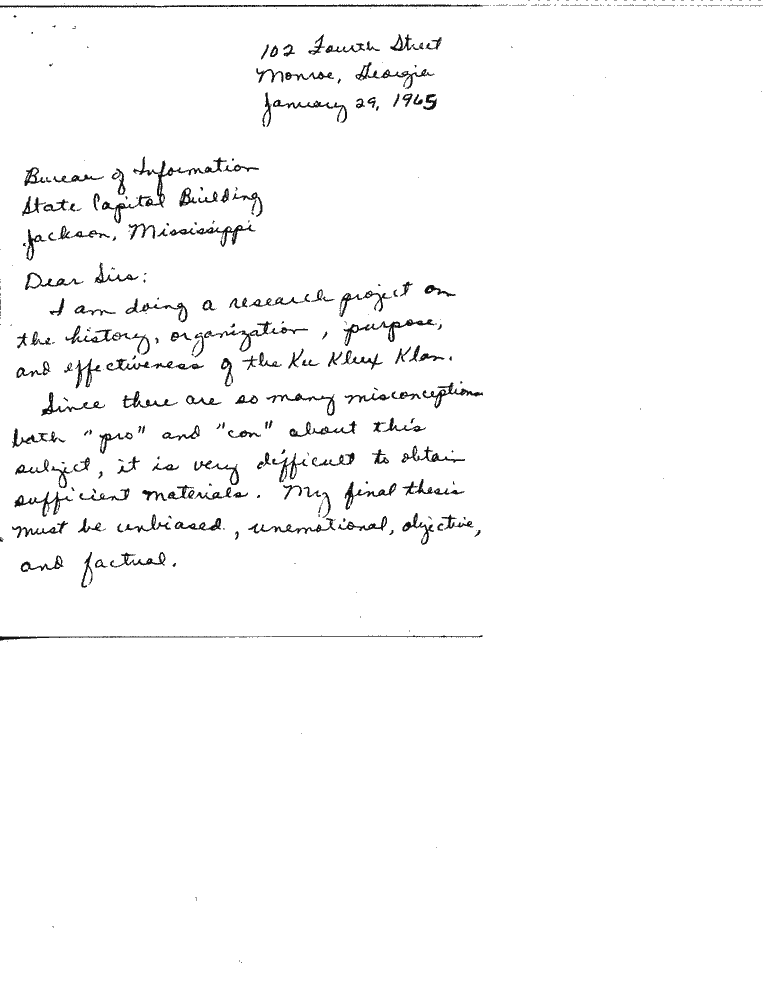 102 Fourth Street
Monroe, Georgia
January 29, 1965
Bureau of Information
State Capital Building
Jackson, Mississippi
Dear Sirs:
I am doing a research project on
the history, organization, purpose,
and effectiveness of the Ku Klux Klan.
Since there are so many misconceptions
both "pro" and "con" about this
subject, it is very difficult to obtain
sufficient materials. My final thesis
must be unbiased, unemotional, objective,
and factual.